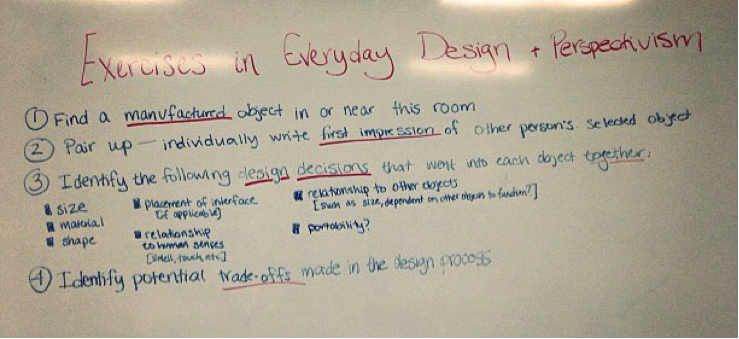 Exercises in Everyday Design + Perspectivism
① Find a manufactured object in or near this room
② Pair up — individually write first impression of other person's selected object
③ Identify the following design decisions that went into each object together:
▪ size
▪ material
▪ shape
▪ placement of interface
[if applicable]
▪ relationship
to human senses
[smell, touch, etc]
▪ relationship to other objects
[such as size, dependent on other objects to function?]
▪ portability?
④ Identify potential trade-offs made in the design process